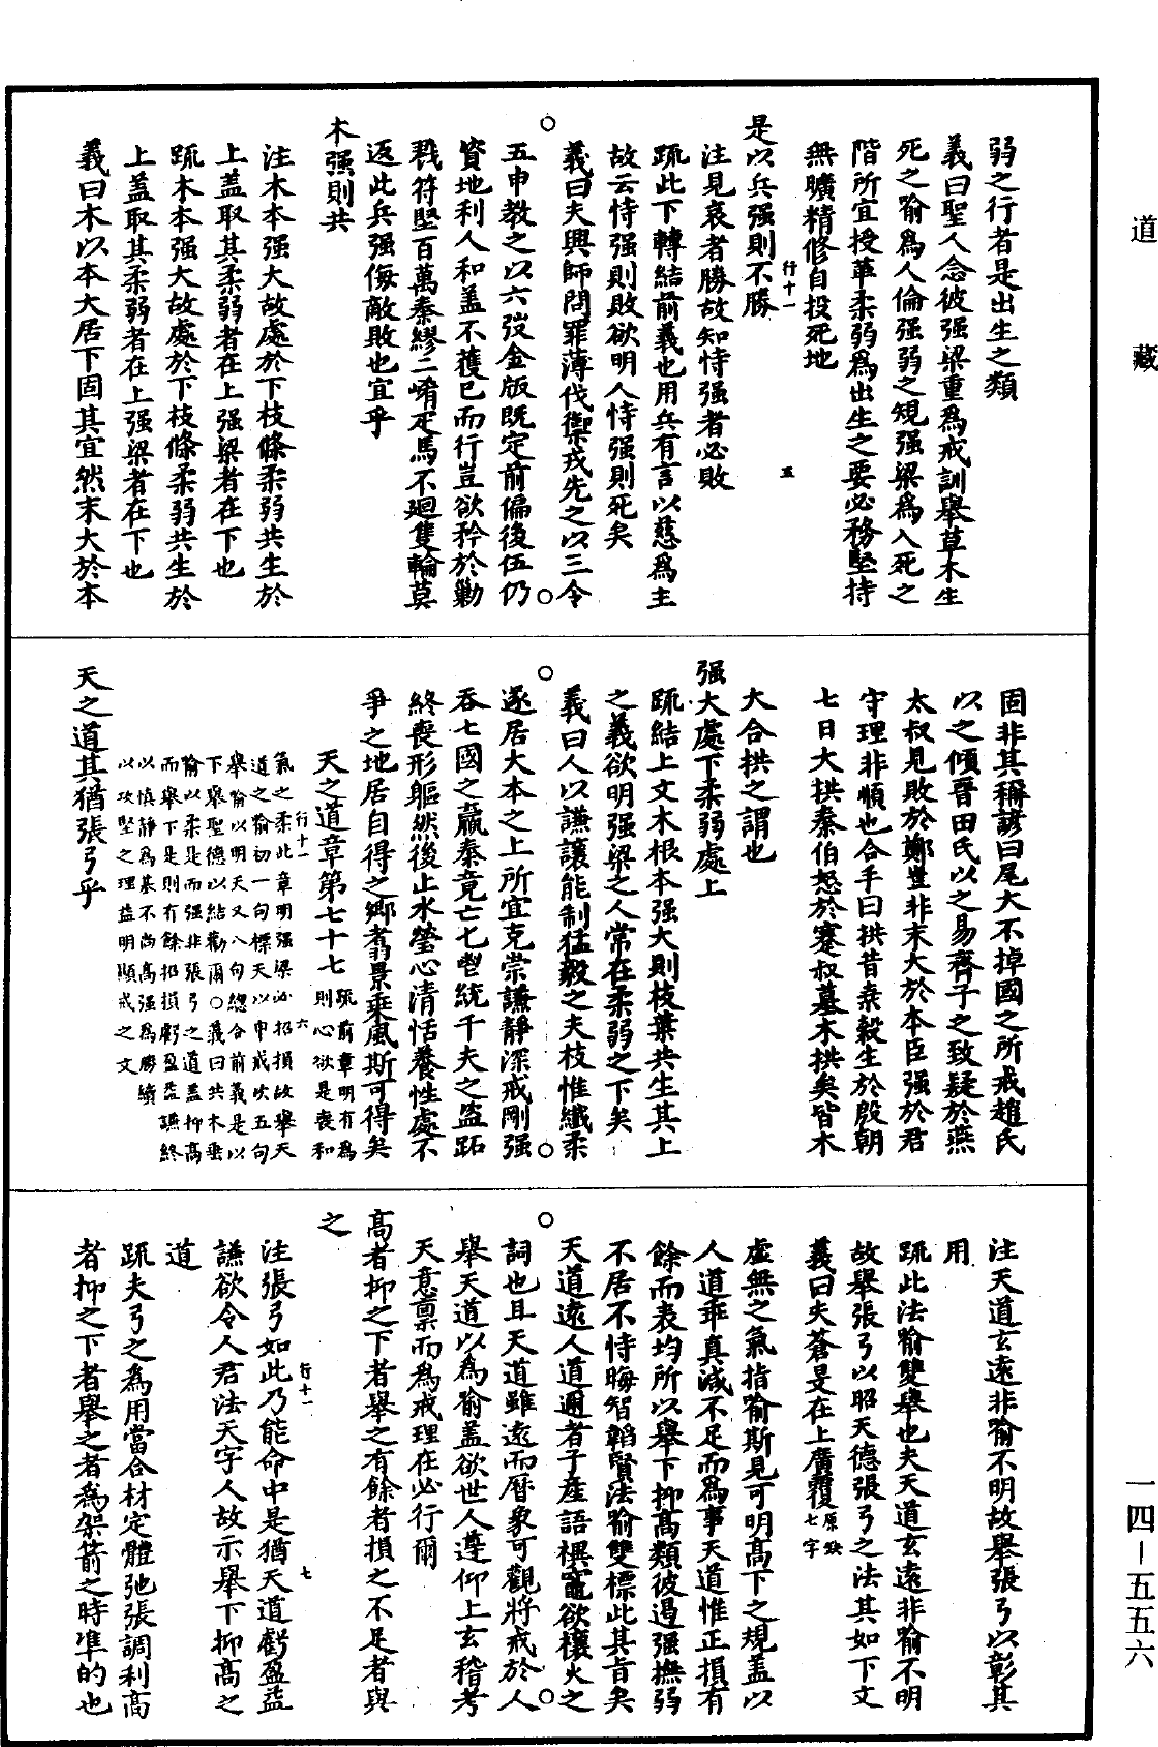 道藏
弱之行者是出生之類
義曰聖人念彼强梁重爲戒訓舉草木生
死之喻爲人倫强弱之規强梁爲入死之
階所宜授革柔弱爲出生之要必務堅持
無曠精修自投死地
行十一
五
是以兵强則不勝
注見哀者勝故知恃强者必敗
疏此下轉結前義也用兵有言以慈爲主
故云恃强則敗欲明人恃强則死矣
義曰夫興師問罪薄伐禦戎先之以三令
五申教之以六弢金版既定前偏後伍仍
資地利人和盖不獲已而行豈欲矜於勦
戮符堅百萬秦繆二崤疋馬不迴隻輪莫
返此兵强侮敵敗也宜乎
木强則共
注木本强大故處於下枝條柔弱共生於
上盖取其柔弱者在上强梁者在下也
疏木本强大故處於下枝條柔弱共生於
上盖取其柔弱者在上强梁者在下也
義曰木以本大居下固其宜然末大於本
固非其稱諺曰尾大不掉國之所戒趙氏
以之傾晉田氏以之易齊子之致疑於燕
太叔見敗於鄭豈非末大於本臣强於君
守理非順也合手曰拱昔桒榖生於殷朝
七日大拱秦伯怒於蹇叔墓木拱矣皆木
大合拱之謂也
强大處下柔弱處上
疏結上文木根本强大則枝葉共生其上
之義欲明强梁之人常在柔弱之下矣
義曰人以謙讓能制猛毅之夫枝惟纖柔
遂居大本之上所宜克崇謙靜深戒剛强
吞七國之嬴秦竟亡七世統千夫之盜跖
終喪形軀然後止水瑩心清恬養性處不
爭之地居自得之鄉翥景乘風斯可得矣
天之道章第七十七疏前章明有爲
則心欲是喪和
氣之柔此章明强梁必招損故舉天
行十一
六
道之喻初一句標天以申戒次五句
舉喻以明天又八句緫合前義是以
下舉聖德以結勸爾○義曰共木垂
喻以柔是而强非張弓之道盖抑高
而舉下是則有餘招損虧盈益謙終
以慎靜爲基不尚高强爲勝續
以攻堅之理益明顯戒之文
天之道其猶張弓乎
注天道玄遠非喻不明故舉張弓以彰其
用
疏此法喻雙舉也夫天道玄遠非喻不明
故舉張弓以昭天德張弓之法其如下文
義曰夫蒼旻在上廣覆原缺七字
虛無之氣指喻斯見可明高下之規盖以
人道乖真減不足而爲事天道惟正損有
餘而表均所以舉下抑高類彼遏强撫弱
不居不恃晦智韜賢法喻雙標此其旨矣
天道遠人道邇者子產語裨竈欲禳火之
詞也且天道雖遠而曆象可觀將戒於人
舉天道以爲喻盖欲世人遵仰上玄稽考
天意稟而爲戒理在必行爾
高者抑之下者舉之有餘者損之不足者與
之
注張弓如此乃能命中是猶天道虧盈益
行十一
七
謙欲令人君法天字人故示舉下抑高之
道
疏夫弓之爲用當合材定體弛張調利高
者抑之下者舉之者爲架箭之時準的也
一四—五五六